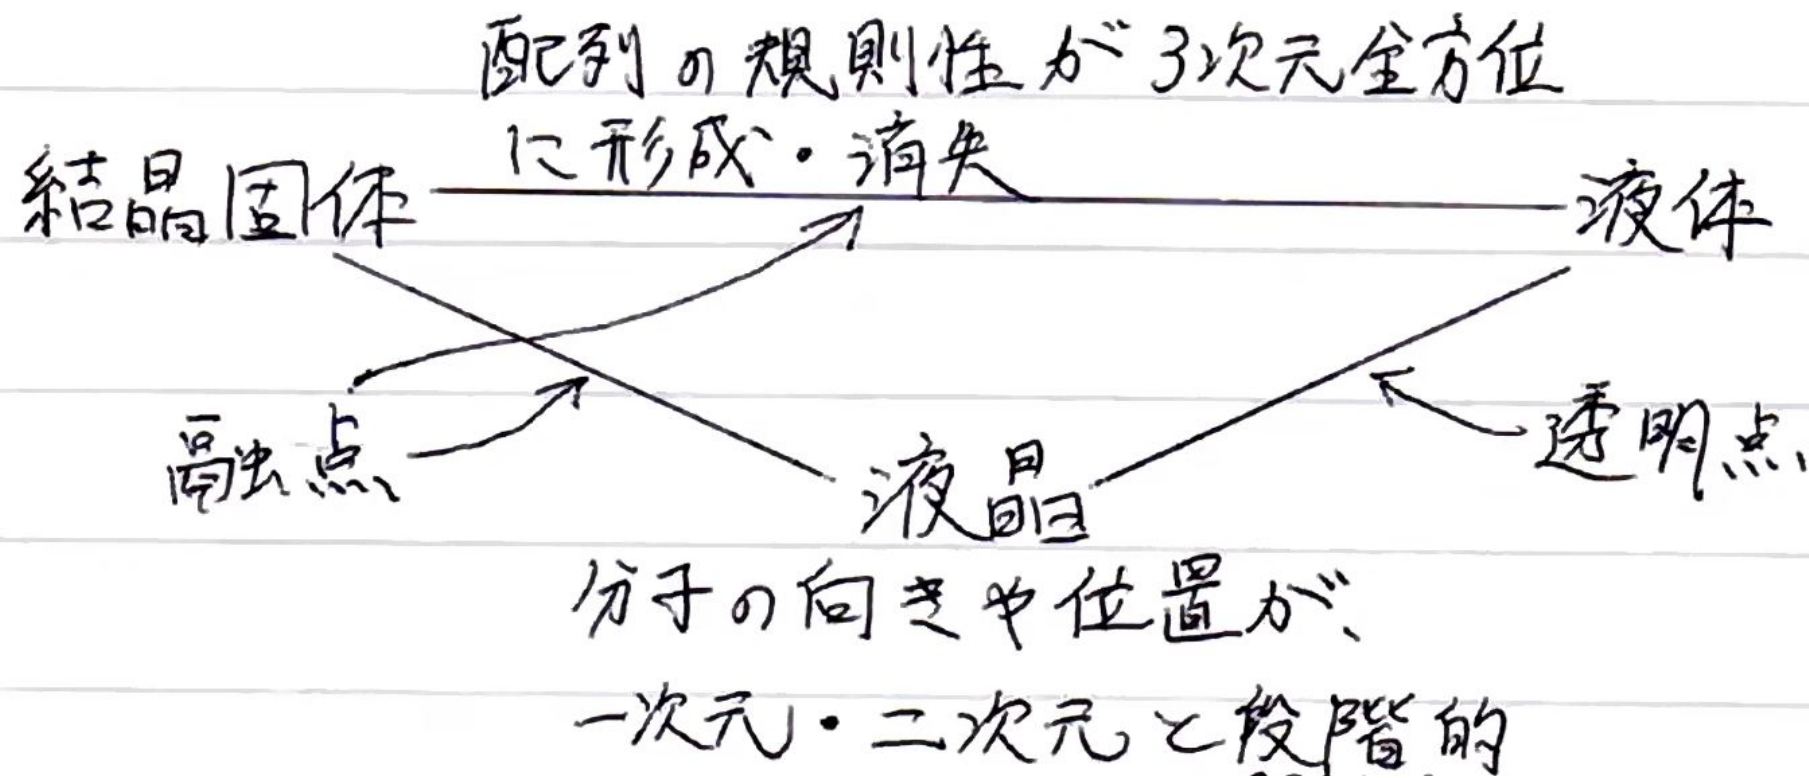 配列の規則性が3次元全方位
に形成・消失
結晶固体
液体
融点
透明点
液晶
分子の向きや位置が、
一次元・二次元と段階的